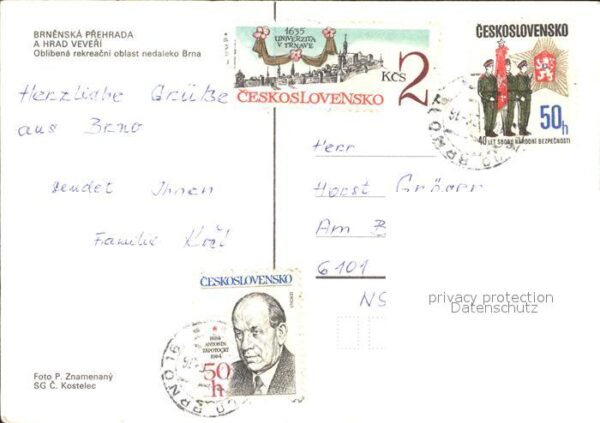 BRNĚNSKÁ PŘEHRADA
A HRAD VEVEŘÍ
Oblíbená rekreační oblast nedaleko Brna
1635
UNIVERZITA
V TRNAVE
Kčs 2
ČESKOSLOVENSKO
ČESKOSLOVENSKO
50h
40 LET SBORU NÁRODNÍ BEZPEČNOSTI
Herzliche Grüße
aus Brno
sendet Ihnen
Familie
Herr
Horst
Am B
6101
privacy protection
Datenschutz
ČESKOSLOVENSKO
1884
ANTONÍN
ZÁPOTOCKÝ
1984
50
h
BRNO
Foto P. Znamenaný
SG Č. Kostelec